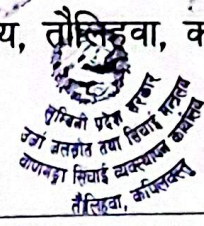 य, तौलिहवा, क
लुम्बिनी प्रदेश सरकार
उर्जा जलस्रोत तथा सिंचाई मन्त्रालय
बाणगङ्गा सिंचाई व्यवस्थापन कार्यालय
तौलिहवा, कपिलवस्तु